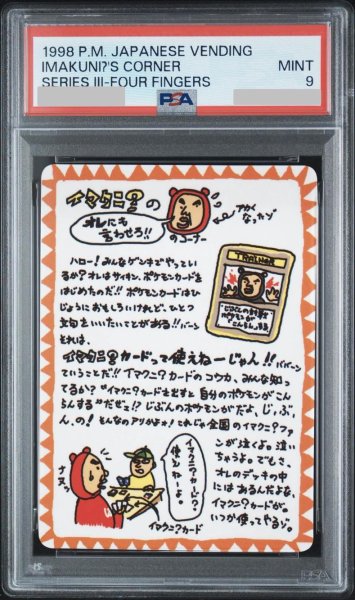 1998 P.M. JAPANESE VENDING
IMAKUNI?'S CORNER
SERIES III-FOUR FINGERS
MINT
9
PSA
イマクニ?の
オレにも
言わせろ!!
のコーナー
アカく
なったゾ
TRAINER
じぶんの
ポケモンが
こんらんする
ハロー!みんなゲンキでやっとい
るか?オレはサイキン、ポケモンカードを
はじめたのだ!!ポケモンカードはひ
じょうにおもしろいけれど、ひとつ
文句をいいたいことがある!!バーン
それは、
イマクニ?カードって使えねーじゃん!!ババーン
ていうことだ!!イマクニ?カードのコウカ、みんな知っ
てるか?"イマクニ?カードを出すと自分のポケモンがこ
んらんする"だぜっ!?じぶんのポケモンがだよ、じ、ぶ、
ん、の!そんなのアリかよォ!これじゃ全国のイマクニ?ファ
ンが泣くよ。泣い
ちゃうよ。でもさ、
オレのデッキの中
にはあんだよな、
イマクニ?カードが。
いつか使ってやるゾ。
イマクニ?カード?
使えねーよ。
ナヌッ
イマクニ?カード
PSA